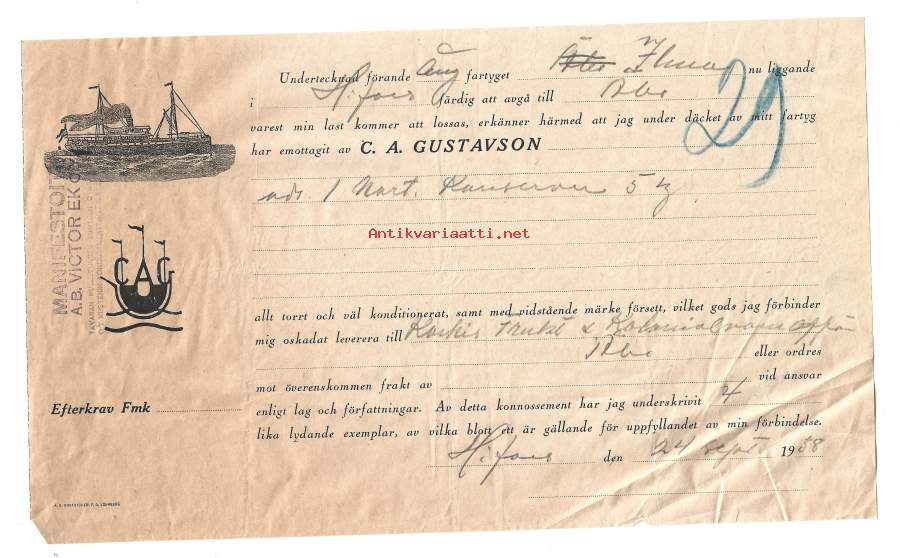 Undertecknad förande Ång fartyget Ilma nu liggande
i H:fors färdig att avgå till Åbo
varest min last kommer att lossas, erkänner härmed att jag under däcket av mitt fartyg
har emottagit av C. A. GUSTAVSON
29
1 Kart. Konserver 5 kg
Antikvariaatti.net
MANIFESTOITU
A.B. VICTOR EK O.Y.
CAG
allt torrt och väl konditionerat, samt med vidstående märke försett, vilket gods jag förbinder
mig oskadat leverera till Koskis Frukt & Kolonialvaru affär
Åbo eller ordres
mot överenskommen frakt av vid ansvar
Efterkrav Fmk
enligt lag och författningar. Av detta konnossement har jag underskrivit 4
lika lydande exemplar, av vilka blott ett är gällande för uppfyllandet av min förbindelse.
H:fors den 24 sept. 1938